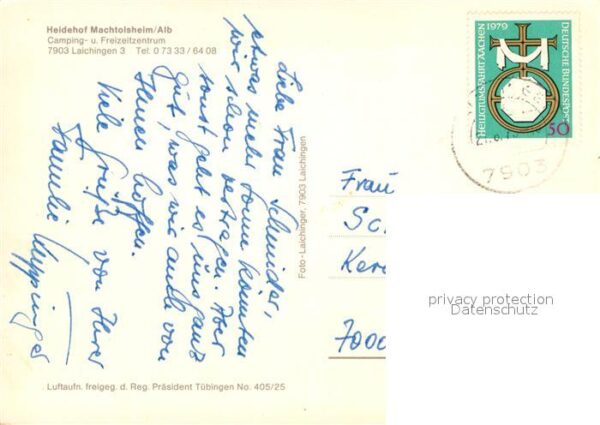 Heidehof Machtolsheim/Alb
Camping- u. Freizeitzentrum
7903 Laichingen 3 Tel: 0 73 33 / 64 08
Liebe Frau Schneider,
etwas mehr Sonne könnten
wir schon vertragen. Aber
sonst geht es uns ganz
gut, was wir auch von
Ihnen hoffen.
Viele Grüße von Ihrer
Familie
Foto - Laichinger, 7903 Laichingen
1979
HEILIGTUMSFAHRT AACHEN
DEUTSCHE BUNDESPOST
50
7903
Frau
Ker
7000
privacy protection
Datenschutz
Luftaufn. freigeg. d. Reg. Präsident Tübingen No. 405/25